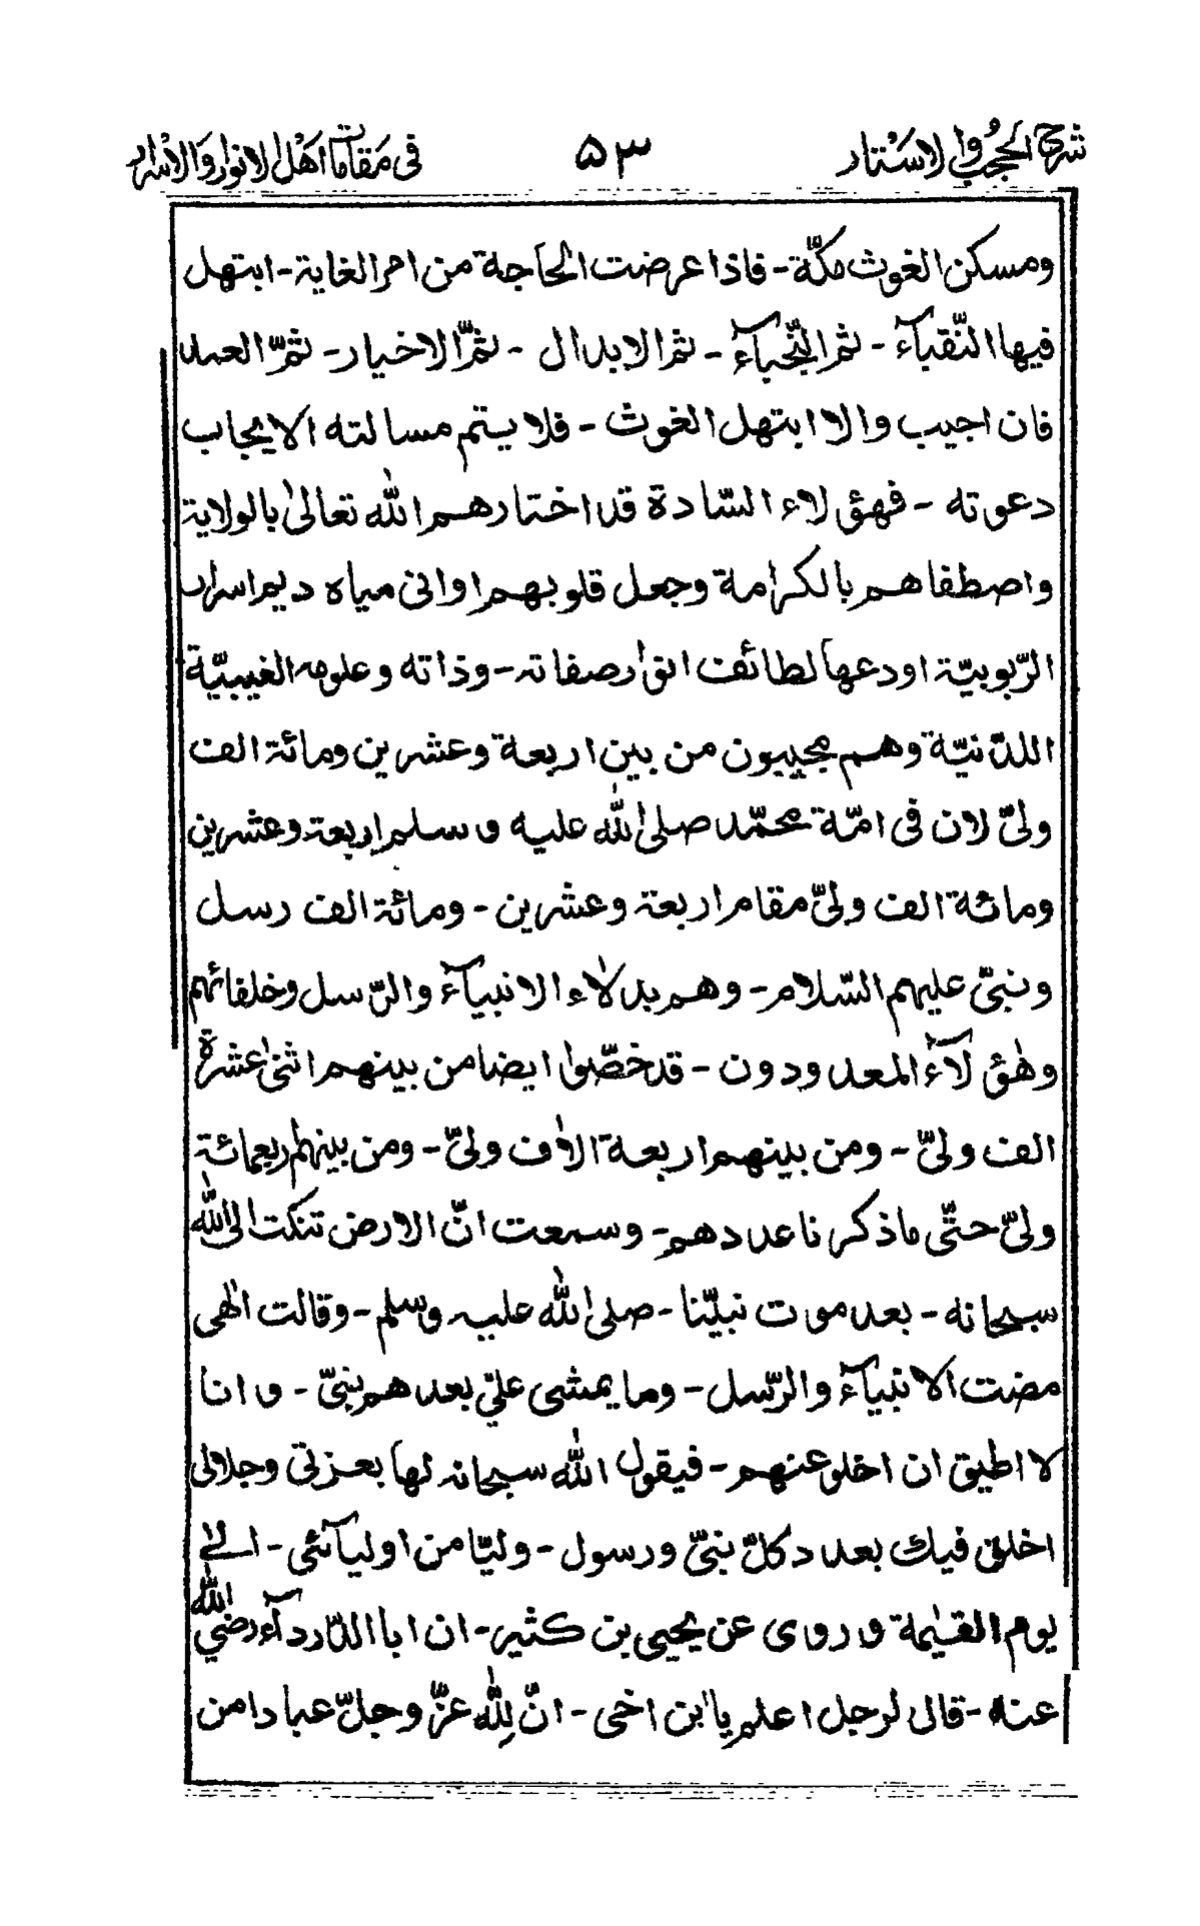 شرح الحجب والاستار ۵۳ فی مقامات اهل الانوار والاسرار
ومسکن الغوث مکّة - فاذا عرضت الحاجة من امر الغایة - ابتهل
فیها النّقبآء - ثم النّجبآء - ثم الابدال - ثمّ الاخیار - ثمّ العمد
فان اجیب والا ابتهل الغوث - فلا یستم مسالته الا یجاب
دعوته - فهؤلاء السّادة قد اختارهم الله تعالیٰ بالولایة
واصطفاهم بالکرامة وجعل قلوبهم اوانی میاه دیم اسرار
الرّبوبیّة اودعها لطائف انوار صفاته - وذاته وعلومه الغیبیّة
اللدّنیّة وهم مجیبون من بین اربعة وعشرین ومائة الف
ولیّ لان فی امّة محمّد صلی الله علیه وسلم اربعة وعشرین
ومائة الف ولیّ مقام اربعة وعشرین - ومائة الف رسل
ونبیّ علیهم السّلام - وهم بدلاء الانبیآء والرّسل وخلفائهم
وهٰؤلآء المعدودون - قد خصّوا ایضا من بینهم اثنیٰ عشرة
الف ولیّ - ومن بینهم اربعة الاٰف ولیّ - ومن بینهم اربعمائة
ولیّ حتّی ماذکرنا عددهم - وسمعت انّ الارض تنکت الی الله
سبحانه - بعد موت نبیّنا - صلی الله علیه وسلم - وقالت الٰهی
مضت الانبیآء والرّسل - وما یمشی علیّ بعدهم نبیّ - وانا
لا اطیق ان اخلو عنهم - فیقول الله سبحانه لها بعزتی وجلالی
اخلق فیك بعدد کلّ نبیّ ورسول - ولیّا من اولیآئی - الیٰ
یوم القیٰمة وروی عن یحیی بن کثیر - ان ابا الدّردآء رضی الله
عنه - قال لرجل اعلم یا ابن اخی - انّ لِلّٰه عزّ وجلّ عبادا من